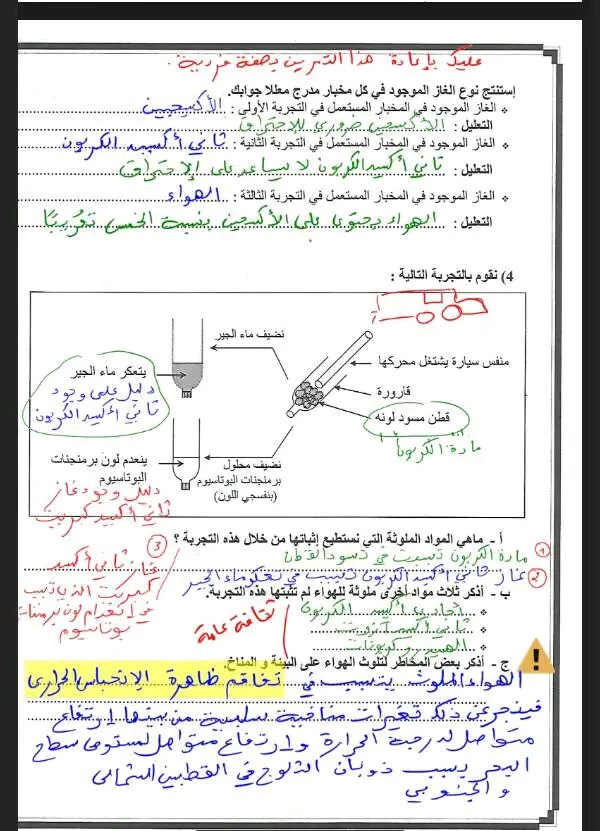 عليك بإعادة هذا التمرين بصفة فردية.
إستنتج نوع الغاز الموجود في كل مخبار مدرج معللا جوابك.
❖ الغاز الموجود في المخبار المستعمل في التجربة الأولى : الأكسيجين
التعليل : الأكسجين ضروري للاحتراق
❖ الغاز الموجود في المخبار المستعمل في التجربة الثانية : ثاني أكسيد الكربون
التعليل : ثاني أكسيد الكربون لا يساعد على الإحتراق
❖ الغاز الموجود في المخبار المستعمل في التجربة الثالثة : الهواء
التعليل : الهواء يحتوي على الأكسجين بنسبة الخمس تقريبا
4) نقوم بالتجربة التالية :
نضيف ماء الجير
منفس سيارة يشتغل محركها
يتعكر ماء الجير
قارورة
دليل على وجود
ثاني أكسيد الكربون
قطن مسود لونه
مادة الكربون
نضيف محلول
برمنجنات البوتاسيوم
(بنفسجي اللون)
ينعدم لون برمنجنات
البوتاسيوم
دليل وجود غاز
ثاني أكسيد كبريت
أ - ماهي المواد الملوثة التي نستطيع إثباتها من خلال هذه التجربة ؟
① مادة الكربون تسببت في تسود القطن
② غاز ثاني أكسيد الكربون تسبب في تعكر ماء الجير
③ غاز ثاني أكسيد
كبريت الذي تسبب
في إنعدام لون برمنغنات
بوتاسيوم
ب - أذكر ثلاث مواد أخرى ملوثة للهواء لم تثبتها هذه التجربة.
أحادي أكسيد الكربون
ثاني أكسيد آزوت
الهيدروكربونات
ثقافة عامة
ج - أذكر بعض المخاطر لتلوث الهواء على البيئة و المناخ.
الهواء الملوث يتسبب في تفاقم ظاهرة الإنحباس الحراري
فينجر عن ذلك تغيرات مناخية سلبية من بينها ارتفاع
متواصل لدرجة الحرارة وارتفاع متواصل لمستوى سطح
البحر بسبب ذوبان الثلوج في القطبين الشمالي
و الجنوبي